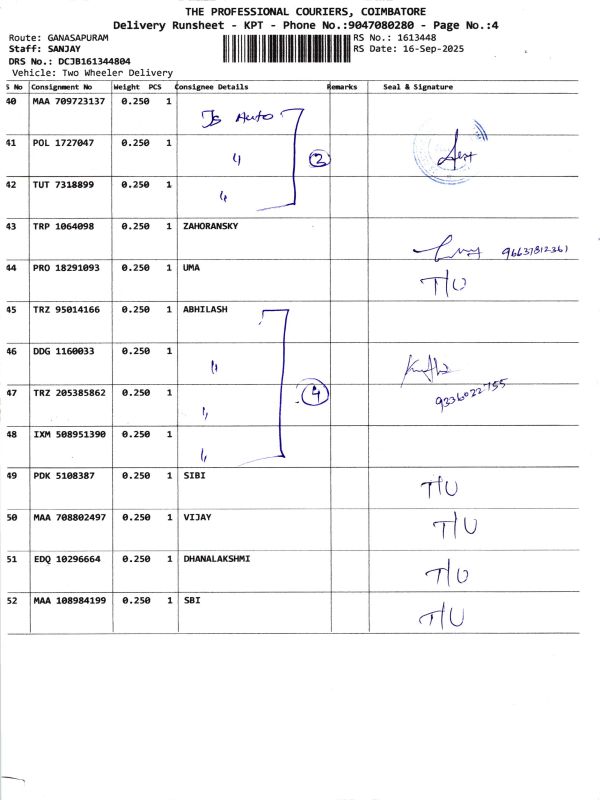 THE PROFESSIONAL COURIERS, COIMBATORE
Delivery Runsheet - KPT - Phone No.:9047080280 - Page No.:4
Route: GANASAPURAM RS No.: 1613448
Staff: SANJAY RS Date: 16-Sep-2025
DRS No.: DCJB161344804
Vehicle: Two Wheeler Delivery
S No Consignment No Weight PCS Consignee Details Remarks Seal & Signature
40 MAA 709723137 0.250 1 Js Auto
41 POL 1727047 0.250 1 〃 2
42 TUT 7318899 0.250 1 〃
43 TRP 1064098 0.250 1 ZAHORANSKY 96637812361
44 PRO 18291093 0.250 1 UMA T/U
45 TRZ 95014166 0.250 1 ABHILASH
46 DDG 1160033 0.250 1 〃
47 TRZ 205385862 0.250 1 〃 4 9336022755
48 IXM 508951390 0.250 1 〃
49 PDK 5108387 0.250 1 SIBI T/U
50 MAA 708802497 0.250 1 VIJAY T/U
51 EDQ 10296664 0.250 1 DHANALAKSHMI T/U
52 MAA 108984199 0.250 1 SBI T/U